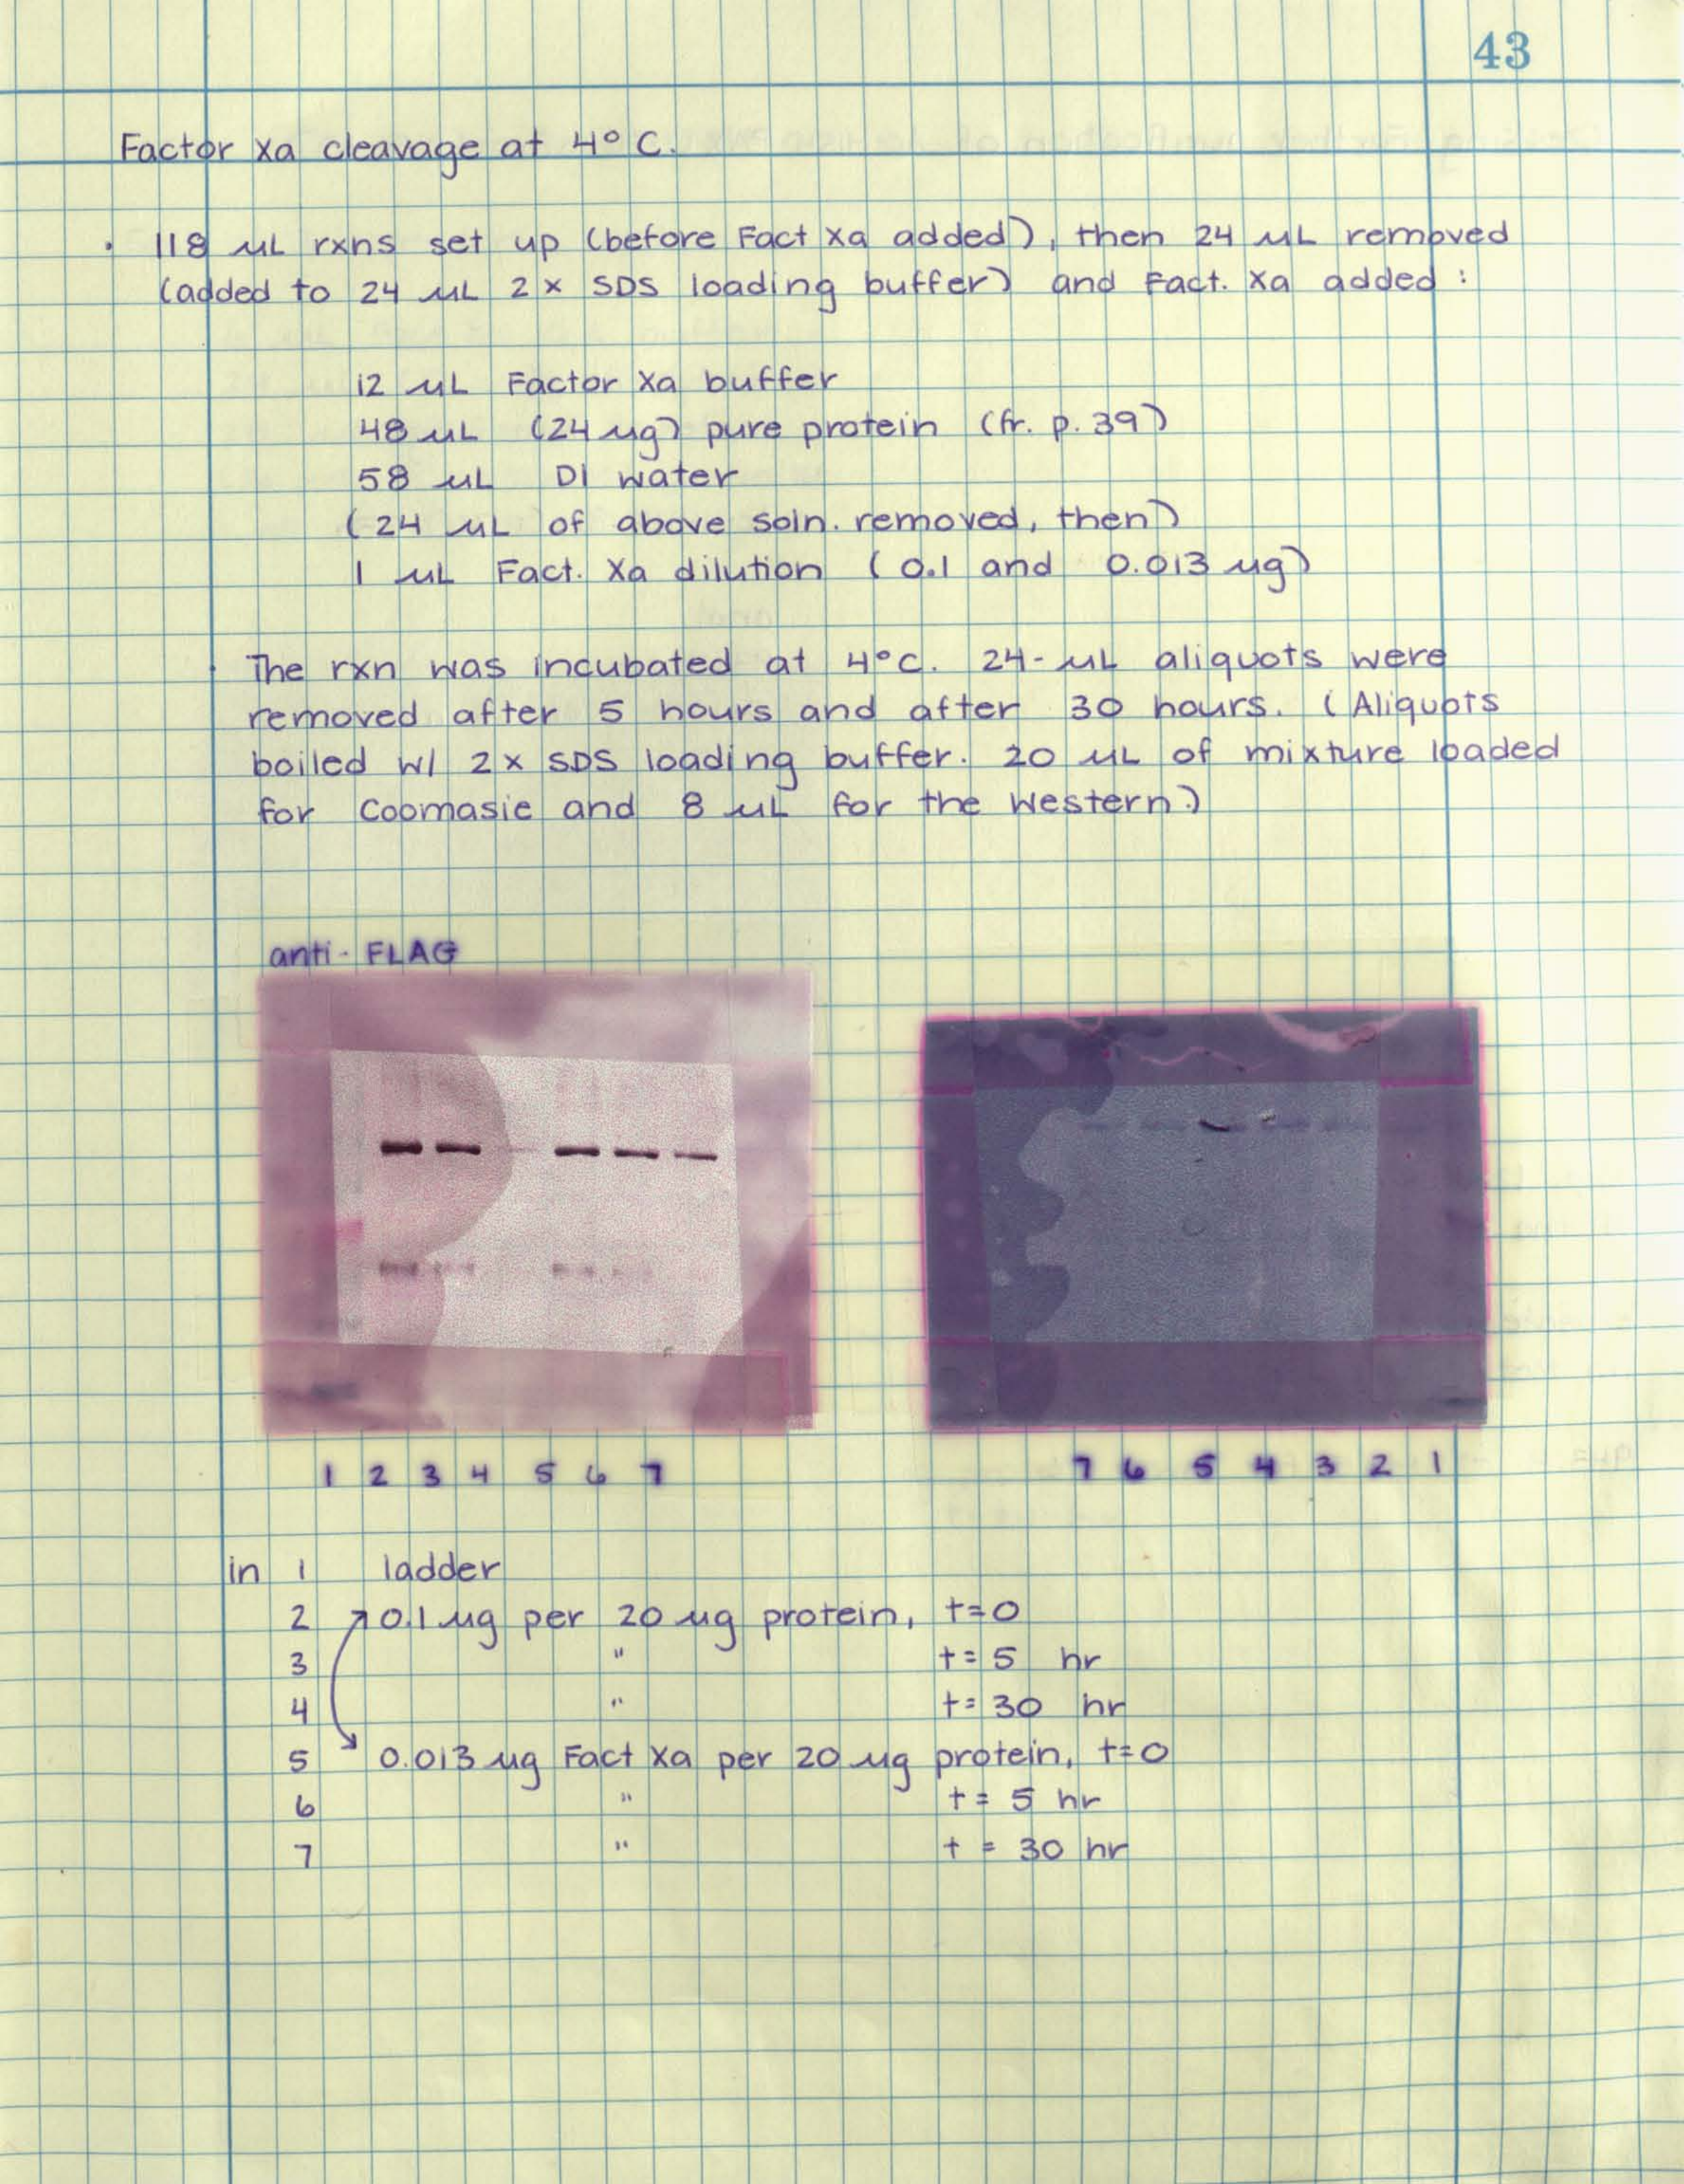 43
Factor Xa cleavage at 4° C.
· 118 µL rxns set up (before Fact Xa added), then 24 µL removed
(added to 24 µL 2x SDS loading buffer) and Fact. Xa added:
12 µL Factor Xa buffer
48 µL (24 µg) pure protein (fr. p. 39)
58 µL DI water
(24 µL of above soln. removed, then)
1 µL Fact. Xa dilution (0.1 and 0.013 µg)
· The rxn was incubated at 4°C. 24-µL aliquots were
removed after 5 hours and after 30 hours. (Aliquots
boiled w/ 2x SDS loading buffer. 20 µL of mixture loaded
for Coomasie and 8 µL for the Western.)
anti-FLAG
1 2 3 4 5 6 7
7 6 5 4 3 2 1
ln 1 ladder
2 0.1 µg per 20 µg protein, t=0
3 " t=5 hr
4 " t=30 hr
5 0.013 µg Fact Xa per 20 µg protein, t=0
6 " t= 5 hr
7 " t = 30 hr